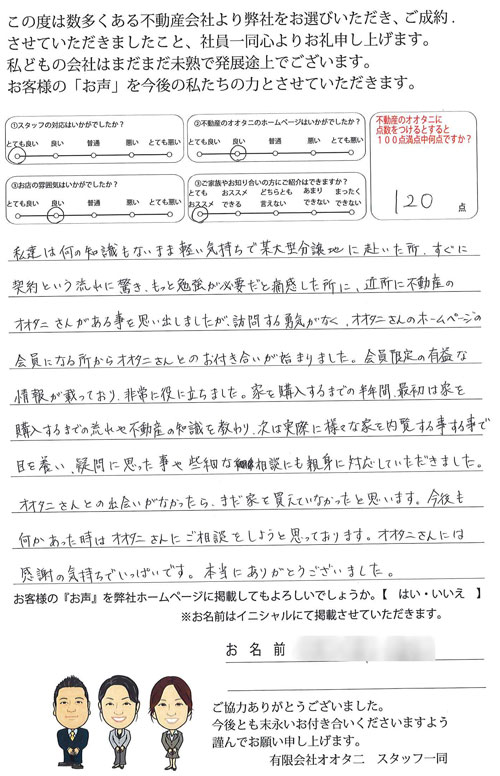 この度は数多くある不動産会社より弊社をお選びいただき、ご成約.
させていただきましたこと、社員一同心よりお礼申し上げます。
私どもの会社はまだまだ未熟で発展途上でございます。
お客様の「お声」を今後の私たちの力とさせていただきます。
①スタッフの対応はいかがでしたか?
とても良い 良い 普通 悪い とても悪い
②不動産のオオタニのホームページはいかがでしたか?
とても良い 良い 普通 悪い とても悪い
不動産のオオタニに
点数をつけるとすると
100点満点中何点ですか?
120 点
③お店の雰囲気はいかがでしたか?
とても良い 良い 普通 悪い とても悪い
③ご家族やお知り合いの方にご紹介はできますか?
とても おススメ どちらとも あまり まったく
おススメ できる 言えない できない できない
私達は何の知識もないまま軽い気持ちで某大型分譲地に赴いた所、すぐに
契約という流れに驚き、もっと勉強が必要だと痛感した所に、近所に不動産の
オオタニさんがある事を思い出しましたが、訪問する勇気がなく、オオタニさんのホームページの
会員になる所からオオタニさんとのお付き合いが始まりました。会員限定の有益な
情報が載っており、非常に役に立ちました。家を購入するまでの半年間、最初は家を
購入するまでの流れや不動産の知識を教わり、次は実際に様々な家を内覧する事する事で
目を養い、疑問に思った事や些細な相談にも親身に対応していただきました。
オオタニさんとの出会いがなかったら、まだ家を買えていなかったと思います。今後も
何かあった時はオオタニさんにご相談をしようと思っております。オオタニさんには
感謝の気持ちでいっぱいです。本当にありがとうございました。
お客様の『お声』を弊社ホームページに掲載してもよろしいでしょうか。【 はい・いいえ 】
※お名前はイニシャルにて掲載させていただきます。
お 名 前
ご協力ありがとうございました。
今後とも末永いお付き合いくださいますよう
謹んでお願い申し上げます。
有限会社オオタニ スタッフ一同